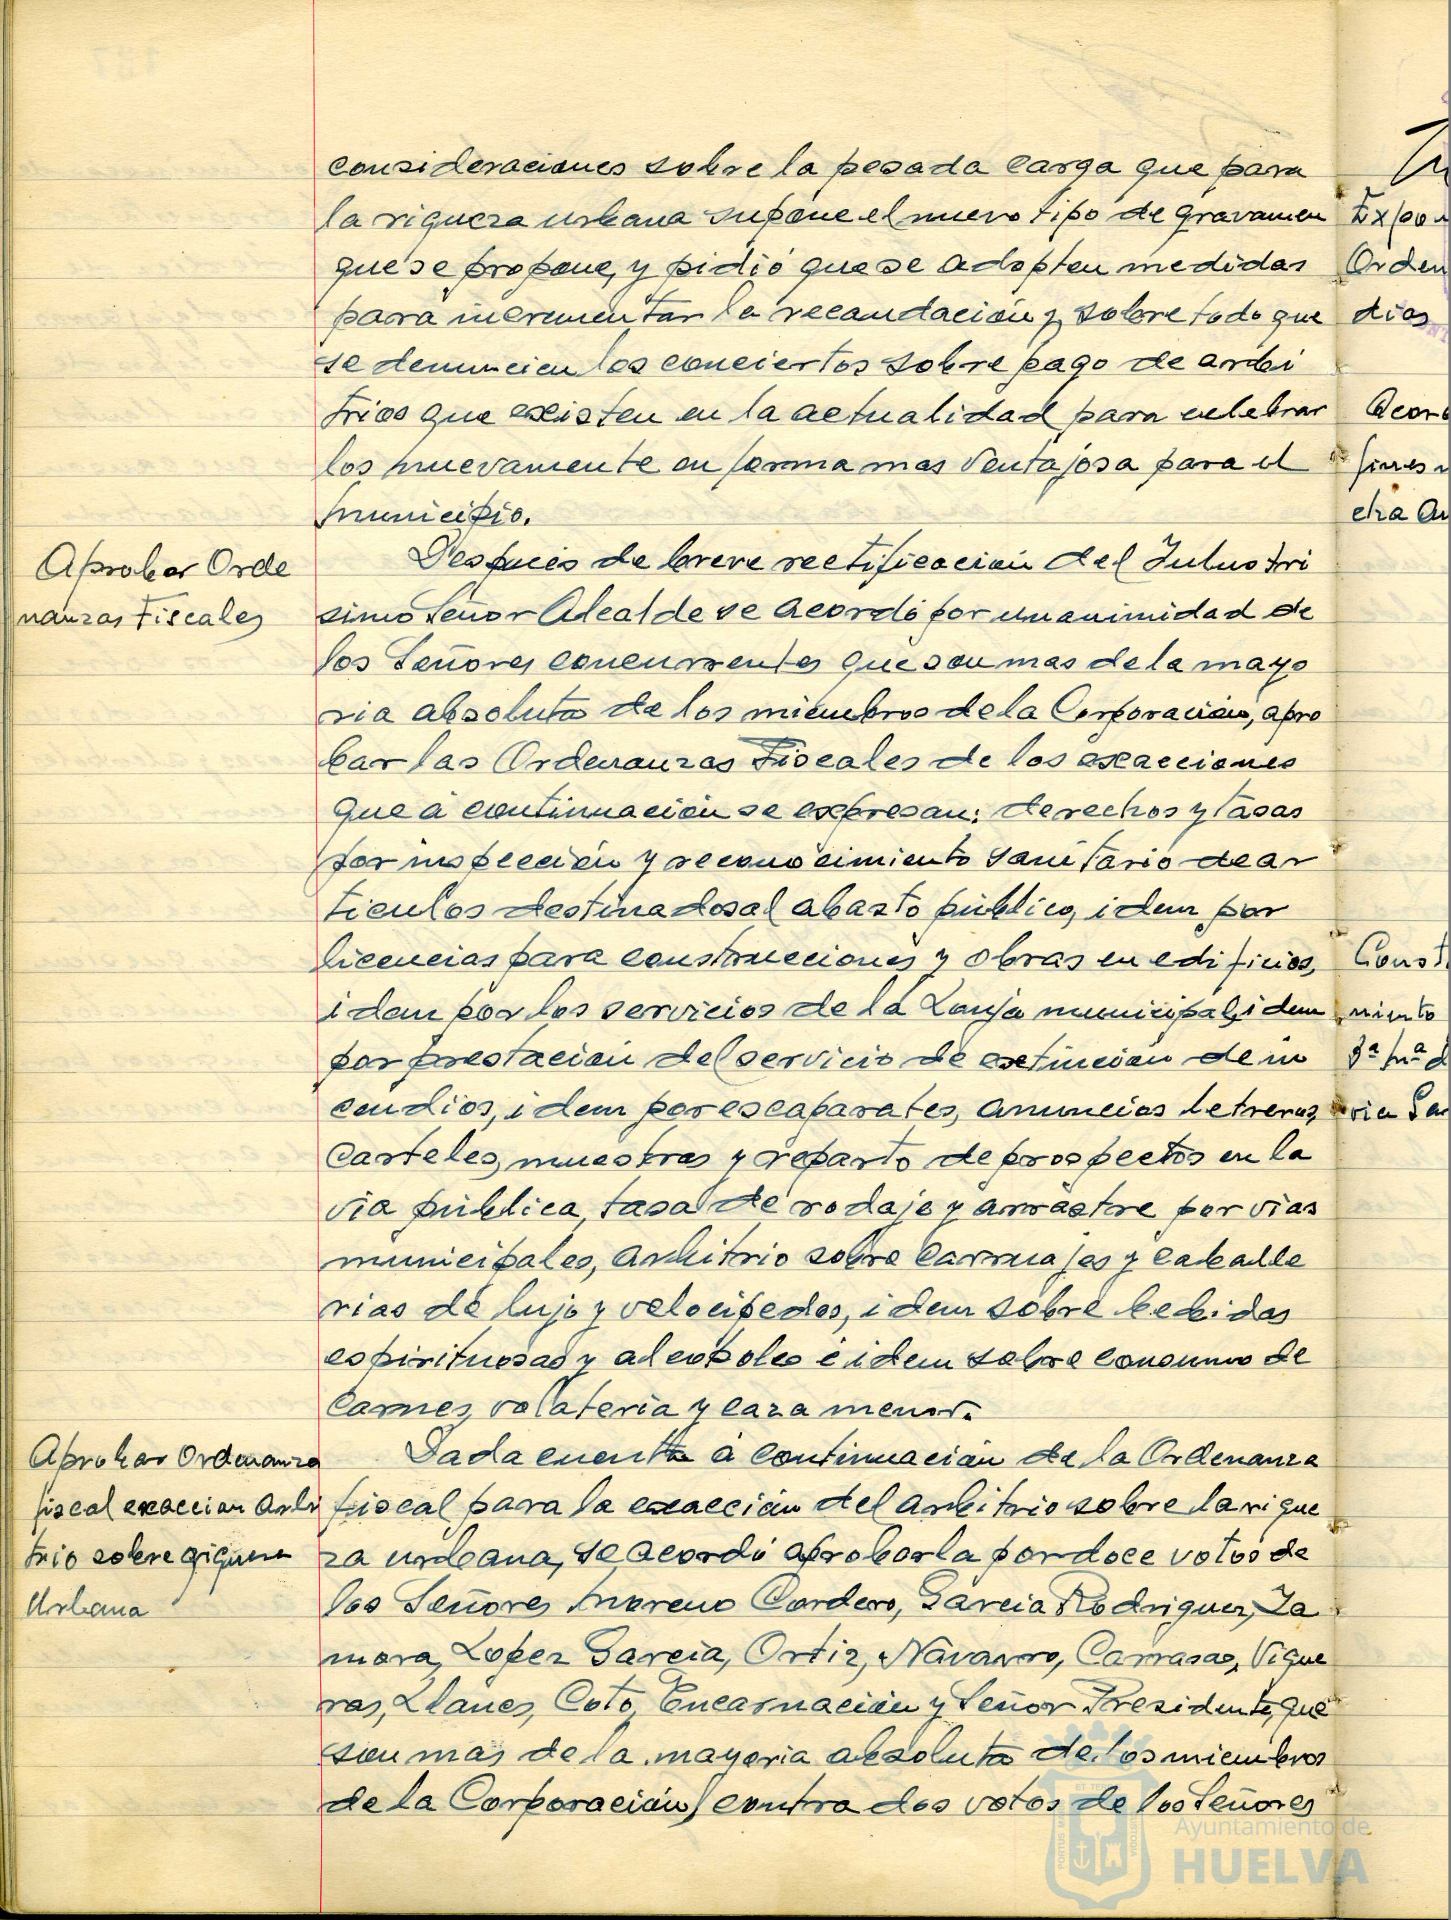 consideraciones sobre la pesada carga que para
la riqueza urbana supone el nuevo tipo de gravamen
que se propone, y pidió que se adopten medidas
para incrementar la recaudación y sobre todo que
se denuncien los conciertos sobre pago de arbi
trios que existen en la actualidad para celebrar
los nuevamente en forma mas ventajosa para el
municipio.
Aprobar Orde
nanzas Fiscales
Despues de breve rectificación del Ilustri
simo Señor Alcalde se acordó por unanimidad de
los Señores concurrentes que son mas de la mayo
ria absoluta de los miembros de la Corporación, apro
bar las Ordenanzas Fiscales de los exacciones
que á continuación se expresan: derechos y tasas
por inspección y reconocimiento sanitario de ar
ticulos destinados al abasto público, idem por
licencias para construcciones y obras en edificios,
idem por los servicios de la Lonja municipal, idem
por prestación del servicio de extinción de in
cendios, idem por escaparates, anuncios letreros,
carteles, muestras y reparto de prospectos en la
via pública, tasa de rodaje y arrastre por vias
municipales, arbitrio sobre carruajes y caballe
rias de lujo y velocipedos, idem sobre bebidas
espirituosas y alcoholes é idem sobre consumo de
carnes, volateria y caza menor.
Aprobar Ordenanza
fiscal exaccion Arbi
trio sobre riqueza
Urbana
Dada cuenta á continuación de la Ordenanza
fiscal para la exacción del arbitrio sobre la rique
za urbana, se acordó aprobarla por doce votos de
los Señores Moreno Cordero, Garcia Rodriguez, Za
mora, Lopez Garcia, Ortiz, Navarro, Carrasco, Vigue
ras, Llanes, Coto, Encarnación y Señor Presidente, que
son mas de la mayoria absoluta de los miembros
de la Corporación, contra dos votos de los Señores
Orden
dios
Acor
fines
cha
Const
miento
3ª
Ayuntamiento de
HUELVA